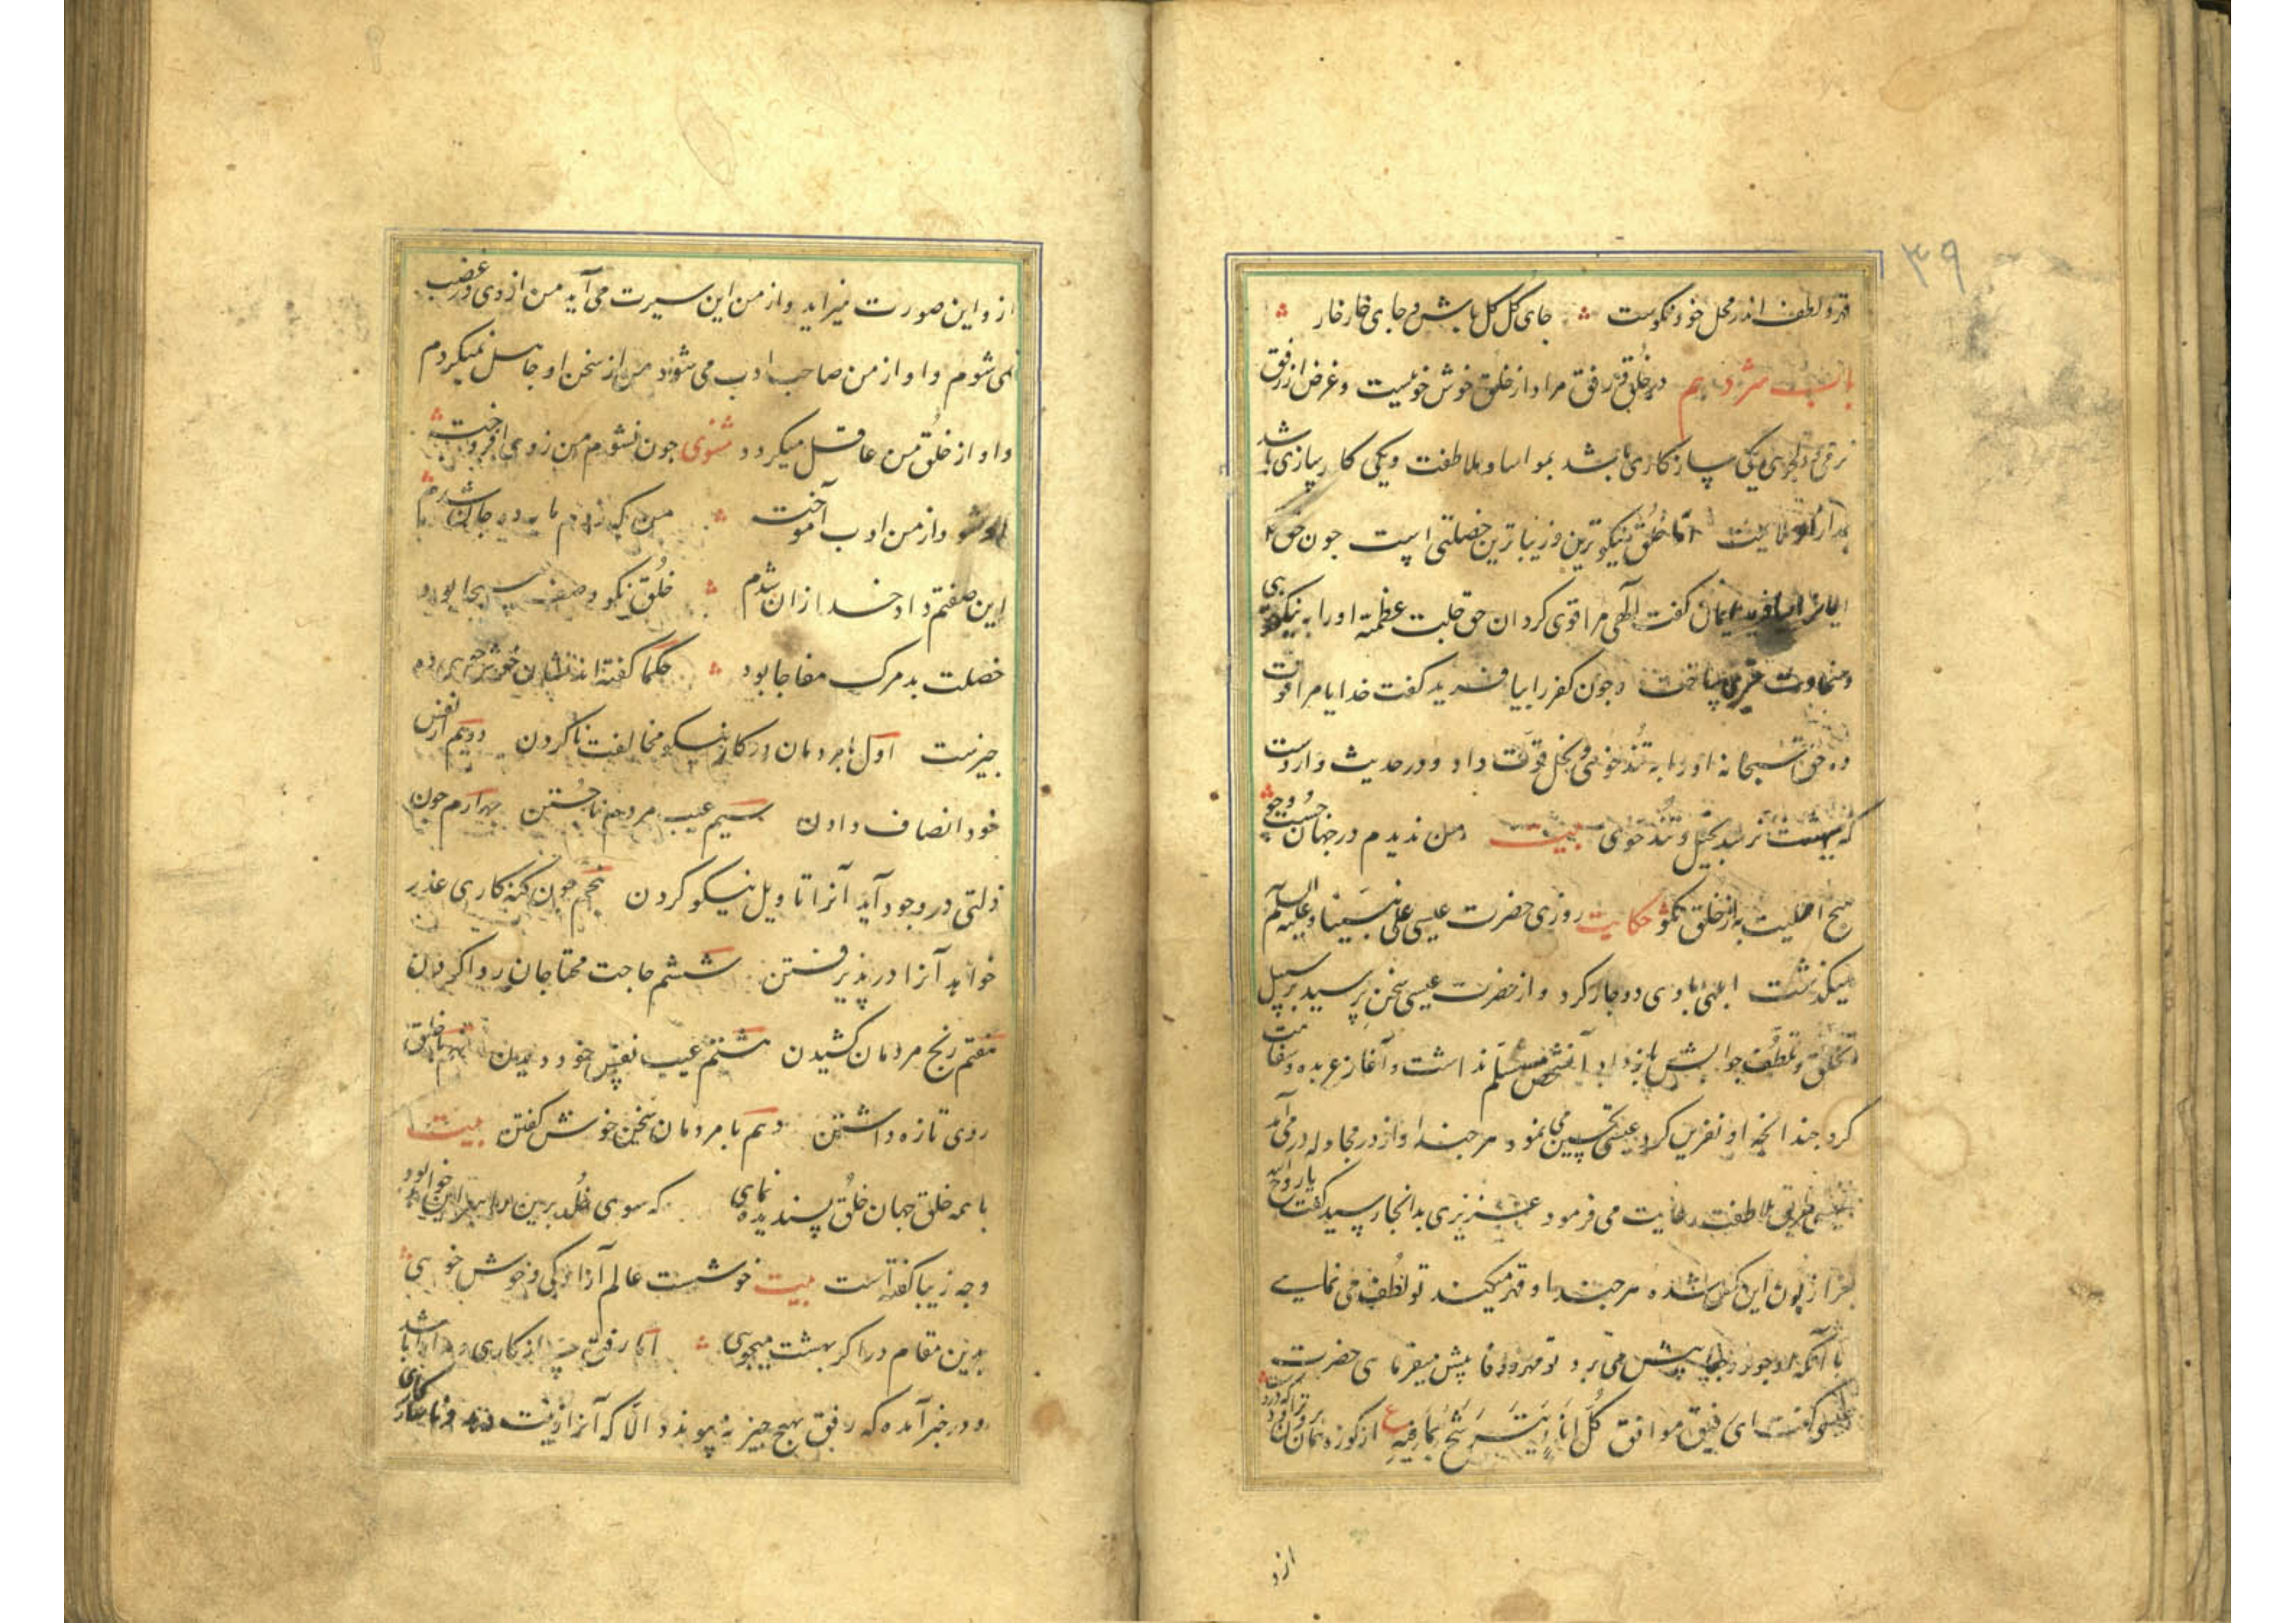 ۳۹
قهر و لطف اندر محل خود نکوست جای گل گل باش و جای خار خار
باب هژدهم در خُلق و رفق مراد از خلق خوش خوئیست و غرض از رفق
نرمی و دلجوی یکی سازکاری باشد بمواسا و ملاطفت و یکی کارسازی باشد
اما خُلق نیکوترین و زیباترین خصلتی است جون حق
ایمان گفت الهی مرا قوی کردان حق جلت عظمته او را به نیکخوی
و سخاوت و جون کفر را بیافرید گفت خدایا مرا قوت
ده حق سبحانه او را به تُندخوئی و بخل قوت داد و در حدیث وارد است
که بهشت نرسد بخیل و تُندخوی بیت من ندیدم در جهان جست و جوی
هیچ اهلیت به از خلق نکو حکایت روزی حضرت عیسی علی نبینا و علیه السلم
میکذشت ابلهی با وی دوجار کرد و از حضرت عیسی سخن پرسید بر سبیل
تخلق و تلطف جوابش باز داد آنشخص مسلم نداشت و آغاز عربده و سفاهت
کرد جندانجه او نفرین کرد عیسی تحسین می نمود هر جند او از در مجادله در می آمد
عیسی طریق ملاطفت رعایت می فرمود عزیزی بدانجا رسید گفت یا روح الله
جرا زبون این کس شده هر جند او قهر میکند تو لُطف می نمایی
با آنکه او جور و جفا پیش می برد تو مهر و وفا پیش میفرمای حضرت
عیسی گفت ای رفیق موافق کُلُّ اِناءٍ یَتَرَشَّحُ بِما فیهِ ع از کوزه همان برون تراود که دروست
ازو
از و این صورت میزاید و از من این سیرت می آید من از وی در غضب
نمی شوم و او از من صاحب ادب می شود من از سخن او جاهل نمیکردم
و او از خلُق من عاقل میکردد مثنوی جون نشوم من ز وی افروخته
او شود از من ادب آموخته من که ز دم مایه ده جان شدم
این صفتم داد خدا زان شدم خُلق نکو وصف مسیحا بود
خصلت بد مرک مفاجا بود حکما گفته اند نشان خوش خوی ده
جیزست اول با مردمان در کار نیکو مخالفت ناکردن دویم از نفس
خود انصاف دادن سیم عیب مردم ناجستن جهارم جون
ذلتی در وجود آید آنرا تاویل نیکو کردن پنجم جون کنه کاری عذر
خواهد آنرا در پذیرفتن ششم حاجت محتاجان روا کردن
هفتم رنج مردمان کشیدن هشتم عیب نفس خود دیدن نهم با خلق
روی تازه داشتن دهم با مردمان سخن خوش گفتن بیت
با همه خلق جهان خلُق پسندیده نمای که سوی خُلد برین راهبر این خواهد بود
و جه زیبا گفته است بیت خوشست عالم آزادکی و خوش خویی
بدین مقام درا کر بهشت میجویی اما رفق سازکاری و مدارا باشد
و در خبر آمده که رفق بهیج جیز نه پیوندد الا که آنرا زینت دهد